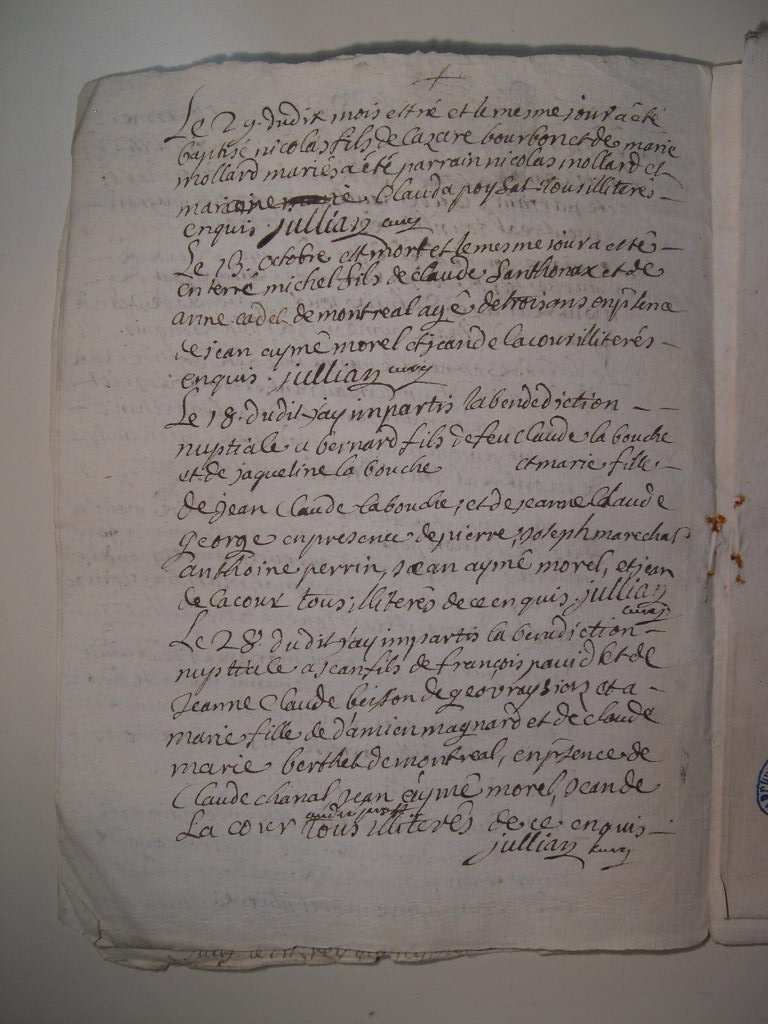 Le 29. dudit mois est né et le mesme jour a été
baptisé nicolas fils de Lazare bourbon et de marie
mollard mariés a été parrain nicolas mollard et
maraine Clauda poysat tous illiterés
enquis. jullian curé
Le 13. octobre est mort et le mesme jour a esté
enterré michel fils de claude Santhonax et de
anne cadet de montreal agé de trois ans en pnce
de jean aymé morel et jean de la cour illiterés
enquis. jullian curé
Le 18. dudit j'ay impartis la bendediction
nuptiale a bernard fils de feu claude la bouche
et de jaqueline la bouche et marie fille
de jean Claude la bouche, et de jeanne Claude
george en presence de pierre, joseph marechal
anthoine perrin, jean aymé morel, et jean
de la cour tous illiterés de ce enquis. jullian
curé
Le 28. dudit j'ay impartis la benediction
nuptiale a jean fils de françois pavid et de
jeanne Claude beisson de geovraysion et a
marie fille de d'amien magnard et de claude
marie berthet de montreal, en psence de
Claude chanal jean aymé morel, jean de
La cour tous illiterés de ce enquis
jullian curé